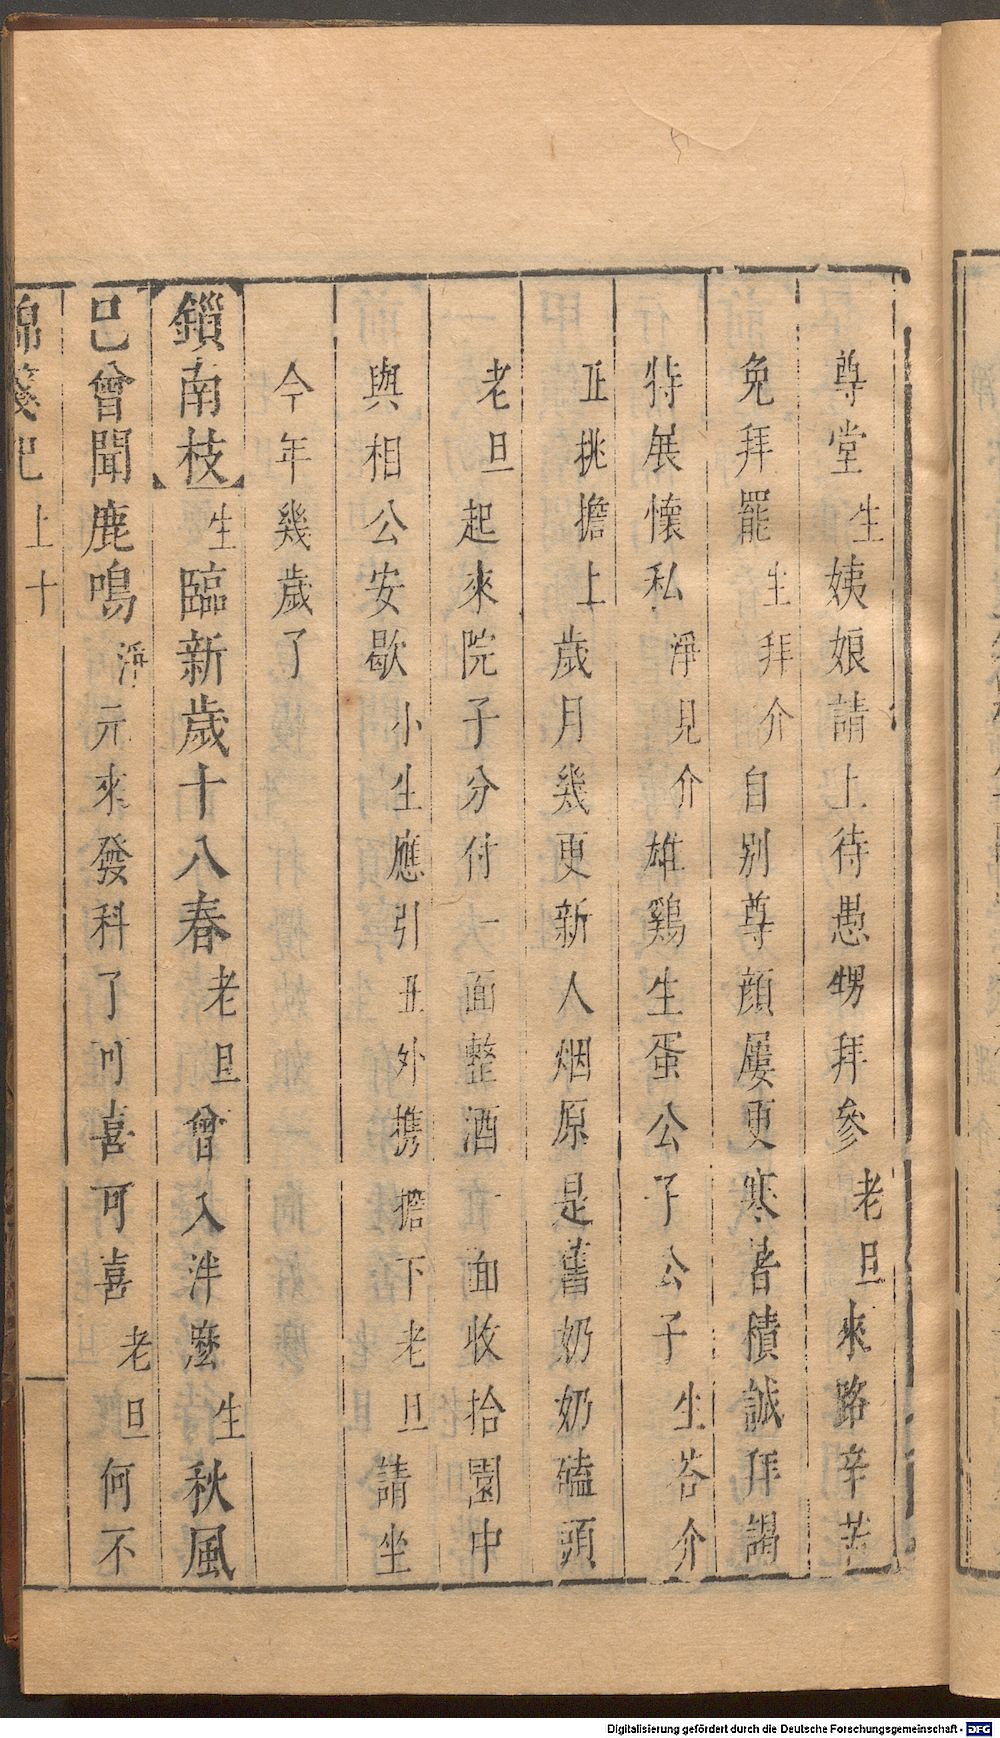 尊堂生姨娘請上待愚甥拜參老旦來路辛苦
免拜罷生拜介自別尊顏屢更寒暑積誠拜謁
特展懷私淨見介雄鷄生蛋公子公子生荅介
丑挑擔上歲月幾更新人烟原是舊奶奶磕頭
老旦起來院子分付一面整酒一面收拾園中
與相公安歇小生應引丑外携擔下老旦請坐
今年幾歲了
鎻南枝生臨新歲十八春老旦曾入泮麼生秋風
已曾聞鹿鳴淨元來發科了可喜可喜老旦何不
錦箋記 上 十
Digitalisierung gefördert durch die Deutsche Forschungsgemeinschaft - DFG